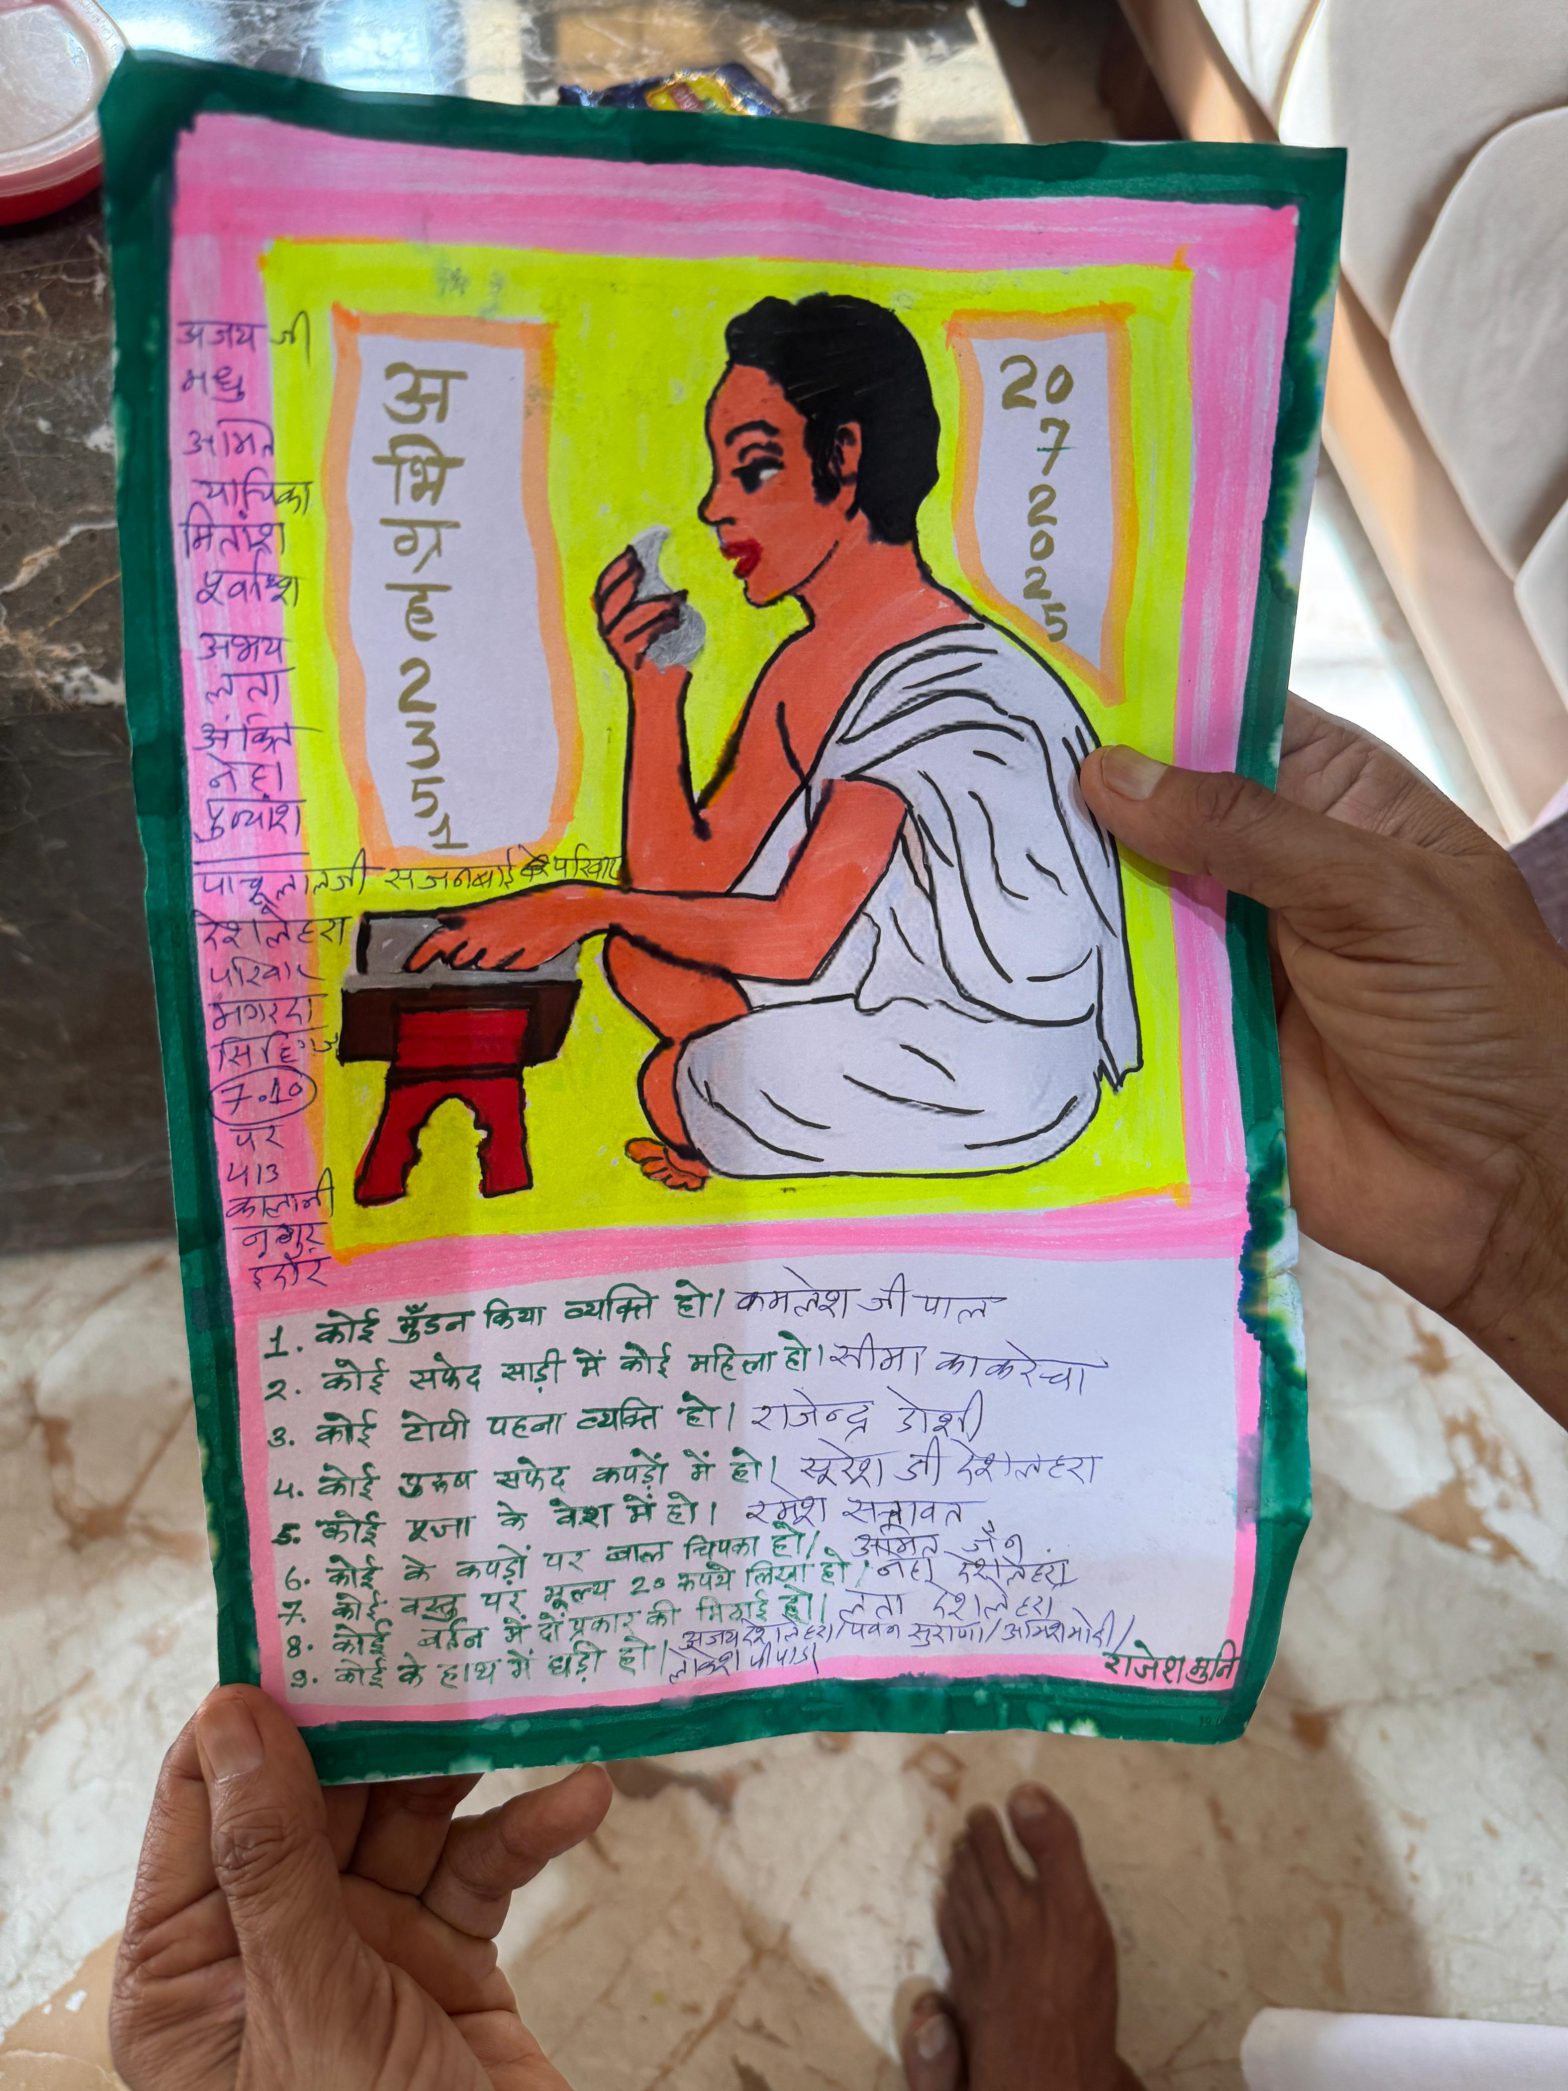 अजय जी
मधु
अमित
याचिका
मितांश
पूर्वांश
अभय
लता
अंकित
नेहा
पुन्यांश
पाचूलालजी सजनबाई परिवार
देशलेहरा
परिवार
मगरदा
7.10
पर
413
कालानी
नगर
इंदौर
अ
भि
ग्र
ह
2
3
5
1
20
7
2
0
2
5
1. कोई मुँडन किया व्यक्ति हो। कमलेश जी पाल
2. कोई सफेद साड़ी में कोई महिला हो। सीमा काकरेचा
3. कोई टोपी पहना व्यक्ति हो। राजेन्द्र डोशी
4. कोई पुरुष सफेद कपड़ों में हो। सूरेश जी देशलहरा
5. कोई पूजा के वेश में हो। रमेश
6. कोई के कपड़ों पर बाल चिपका हो। अमित जैन
7. कोई वस्तु पर मूल्य 20 रुपये लिखा हो। नेहा देशलेहरा
8. कोई बर्तन में दो प्रकार की मिठाई हो। लता देशलेहरा
9. कोई के हाथ में घड़ी हो। अजय देशलेहरा/पवन सुराणा/
लोकेश पीपाडा
राजेश मुनि